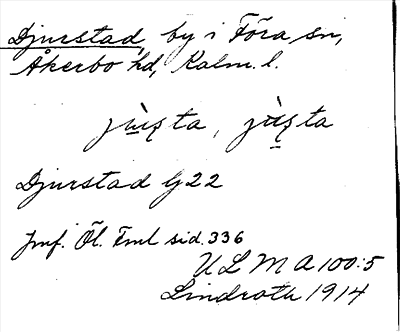 Djurstad, by i Föra sn,
Åkerbo hd, Kalm. l.
Djurstad G 22
Jmf. Öl. Fml sid. 336
ULMA 100:5
Lindroth 1914